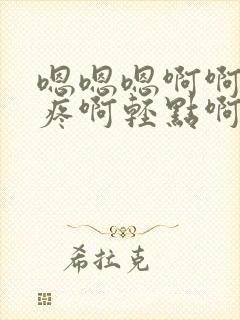 嗯嗯嗯啊啊
疼啊轻點啊
希拉克